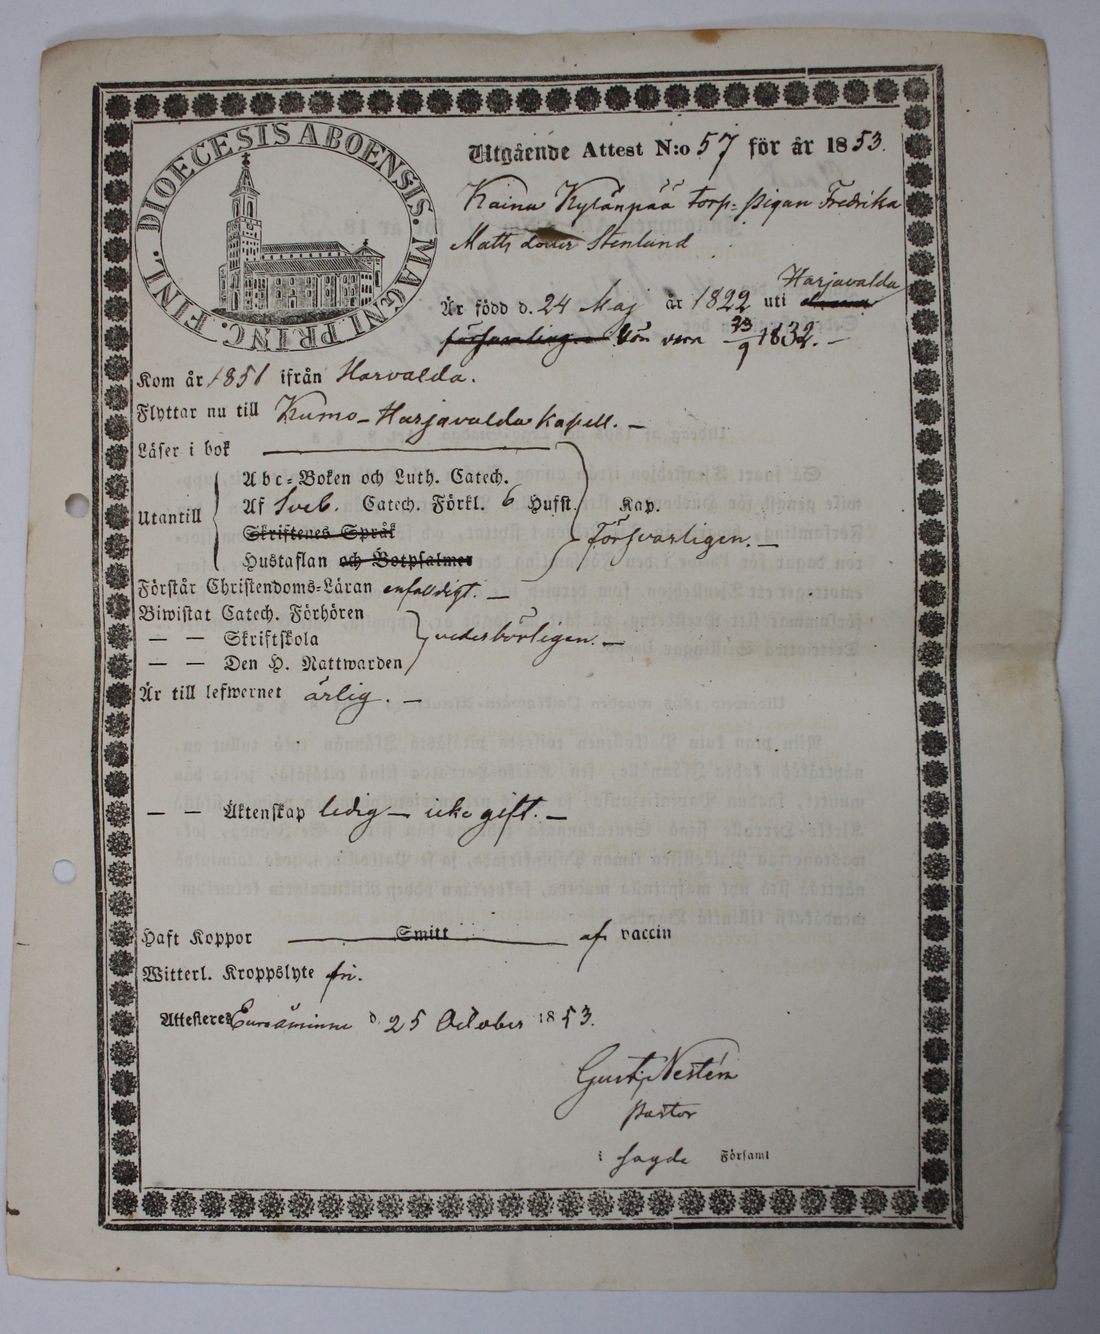 DIOECESIS ABOENSIS. MAGNI PRINC. FINL.
Utgående Attest N:o 57 för år 1853.
Kaina Kylänpää Torp-pigan Fredrika
Matts dotter Stenlund
Är född d. 24 Maj år 1822 uti Harjavalda
församling
23/9 1832. —
Kom år 1851 ifrån Harvalda.
Flyttar nu till Kumo-Harjavalda Kapell. —
Läser i bok
Abc-Boken och Luth. Catech.
Utantill Af Sveb. Catech. Förkl. 6 Hufst. Kap.
Skriftenes Språk
Försvarligen. —
Hustaflan och Botpsalmer
Förstår Christendoms-Läran enfaldigt. —
Biwistat Catech. Förhören
— — Skriftskola vederbörligen. —
— — Den H. Nattwarden
Är till lefwernet ärlig. —
— — Äktenskap ledig — icke gift. —
Haft Koppor Smitt af vaccin
Witterl. Kroppslyte fri.
Attesteres Euraåminne d. 25 October 1853.
Gust. Nestén
Pastor
i sagde Församl